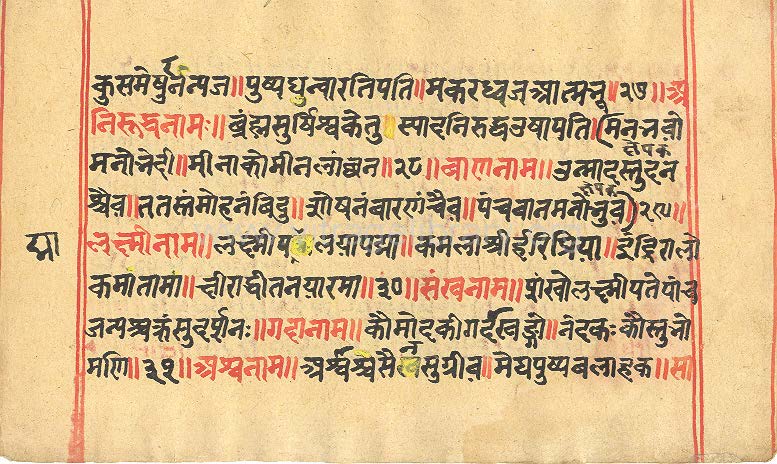 कुसमेषुर्नन्यज॥पुष्पधन्वारतिपति॥मकरध्वजआत्मभू॥२७॥अ
निरूद्धनामः॥ब्रंह्मसुर्यिश्वकेतु स्पादनिरुद्धउषापति॥(मिनजवो
क्षेपक
मनोभेदी॥मीनाकोमीनलांछन॥२८॥बाणनाम॥उन्मादस्तुदन
क्षेपक
श्चैव॥ततस्तंमोहनंविदु॥शोषनंबारणंचैव॥पंचबानमनोभुव)२९॥
द्मा
लक्ष्मीनाम॥लक्ष्मीप लयापद्मा॥कमलाश्रीर्हरिप्रिया॥ईंदिरालो
कमातामा॥क्षीराद्वीतनयारमा॥३०॥संखनाम॥शंखोलक्ष्मीपतेपांच
जन्यश्चक्रंसुदर्शनः॥गदानाम॥कौमोदकीगर्दखिड्गो॥नंदकःकौस्तुभो
मणि॥३१॥अश्वनाम॥अश्वश्चसै सुग्रीव॥मेघपुष्पबलाहक॥सा